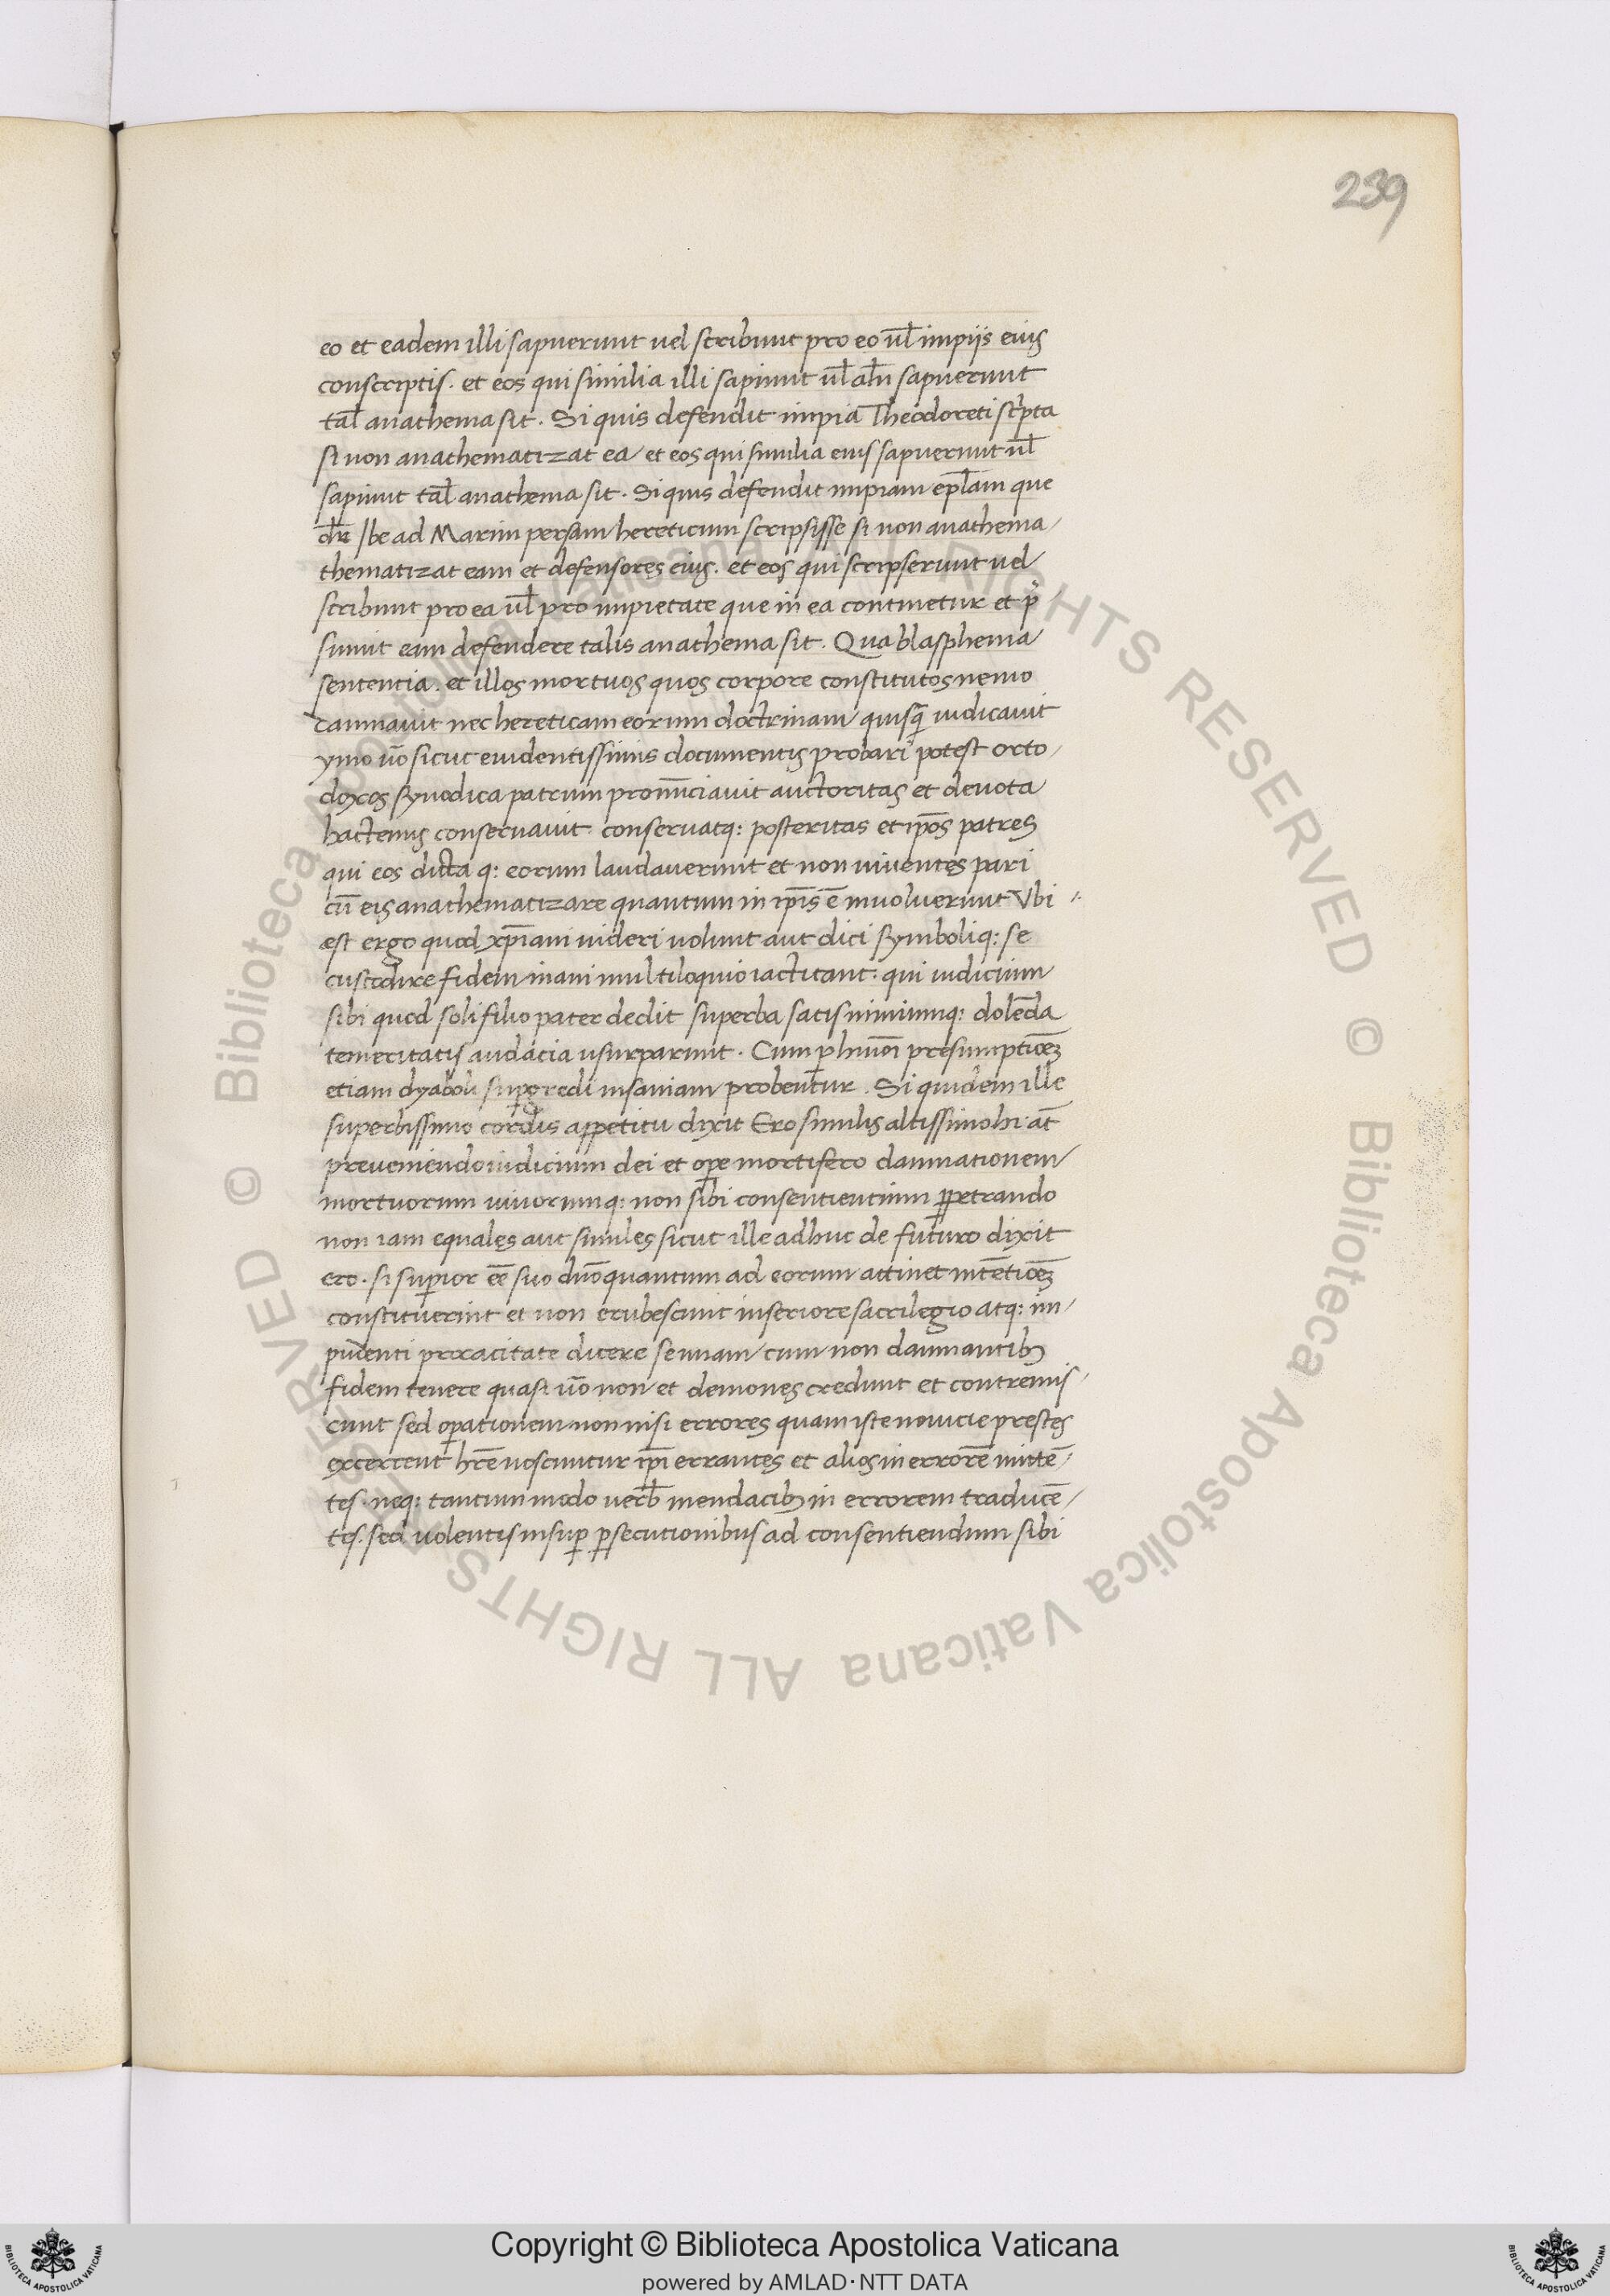 239
eo et eadem illi sapuerunt uel scribunt pro eo ul̄ impijs eius
conscriptis. et eos qui similia illi sapiunt ul̄ aln̄ sapuerunt
tal̄ anathema sit. Si quis defendit impia Theodoreti scͥpta
si non anathematizat ea et eos qui similia eius sapuerunt ul̄
sapiunt tal̄ anathema sit. Si quis defendit impiam epl̄am que
dr̄ Ibe ad Marim persam hereticum scripsisse si non anathema/
thematizat eam et defensores eius. et eos qui scripserunt uel
scribunt pro ea ul̄ pro impietate que in ea continetur et p̄
sumit eam defendere talis anathema sit. Qua blasphema
sententia. et illos mortuos quos corpore constitutos nemo
damnauit nec hereticam eorum doctrinam quisq̄ iudicauit
ymo uō sicut euidentissimis documentis probari potest orto/
doxos synodica patrum pronūciauit auctoritas et deuota
hactenus conseruauit conseruatq: posteritas et ip̄os patres
qui eos dicta q: eorum laudauerunt et non uiuentes pari
cū eis anathematizare quantum in ip̄is ē inuoluerunt Vbi
est ergo quod xp̄iani uideri uolunt aut dici symboliq: se
custodire fidem inani multiloquio iactitant. qui iudicium
sibi quod soli filio pater dedit superba satis nimiumq: dolēda
temeritatis audacia usurparunt. Cum p huiuōi presumptiōeȝ
etiam dyaboli supgredi insaniam probentur. Si quidem ille
superbissimo cordis appetitu dixit Ero similis altissimo hi at̄
preueniendo iudicium dei et ope mortifero damnationem
mortuorum uiuorumq: non sibi consentientium ppetrando
non iam equales aut similes sicut ille adhuc de futuro dixit
ero. si supior eē suo dn̄o quantum ad eorum attinet intētiōeȝ
constituerint et non erubescunt inferiore sacrilegio atq: im/
pudenti procacitate dicere se unam cum non damnantibȝ
fidem tenere quasi uō non et demones credunt et contremis/
cunt sed opationem non nisi errores quam iste nouicie prestes
exercent hr̄e noscuntur ip̄i errantes et alios in errorē mittē/
tes. neq: tantummodo uerb̄ mendacibȝ in errorem traducē/
tes. sed uolentis insup psecutionibus ad consentiendum sibi
© Biblioteca Apostolica Vaticana ALL RIGHTS RESERVED
© Biblioteca Apostolica Vaticana ALL RIGHTS RESERVED
Copyright © Biblioteca Apostolica Vaticana
powered by AMLAD·NTT DATA
BIBLIOTECA APOSTOLICA VATICANA
BIBLIOTECA APOSTOLICA VATICANA